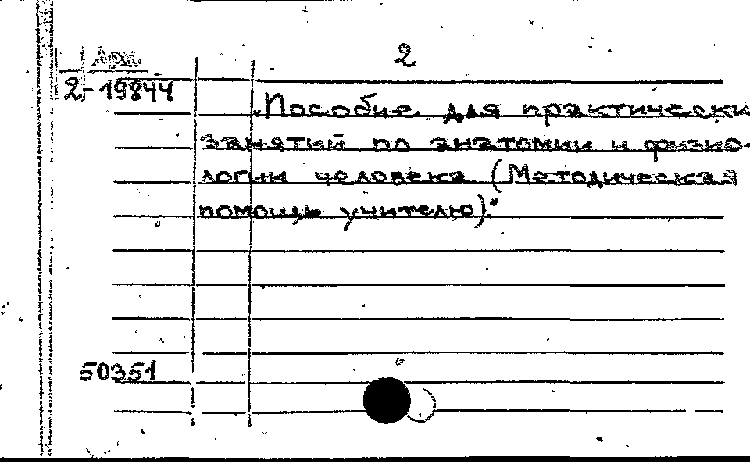 2
Арх.
2-19844
„Пособие для практически
занятий по анатомии и физио-
логии человека (Методическая
помощь учителю)."
50351